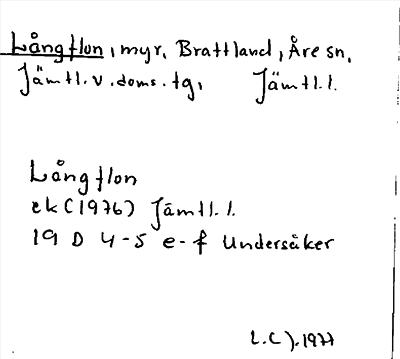 Långflon, myr, Brattland, Åre sn,
Jämtl. v. doms. tg, Jämtl. l.
Långflon
ek (1976) Jämtl. l.
19 D 4-5 e-f Undersåker
1977